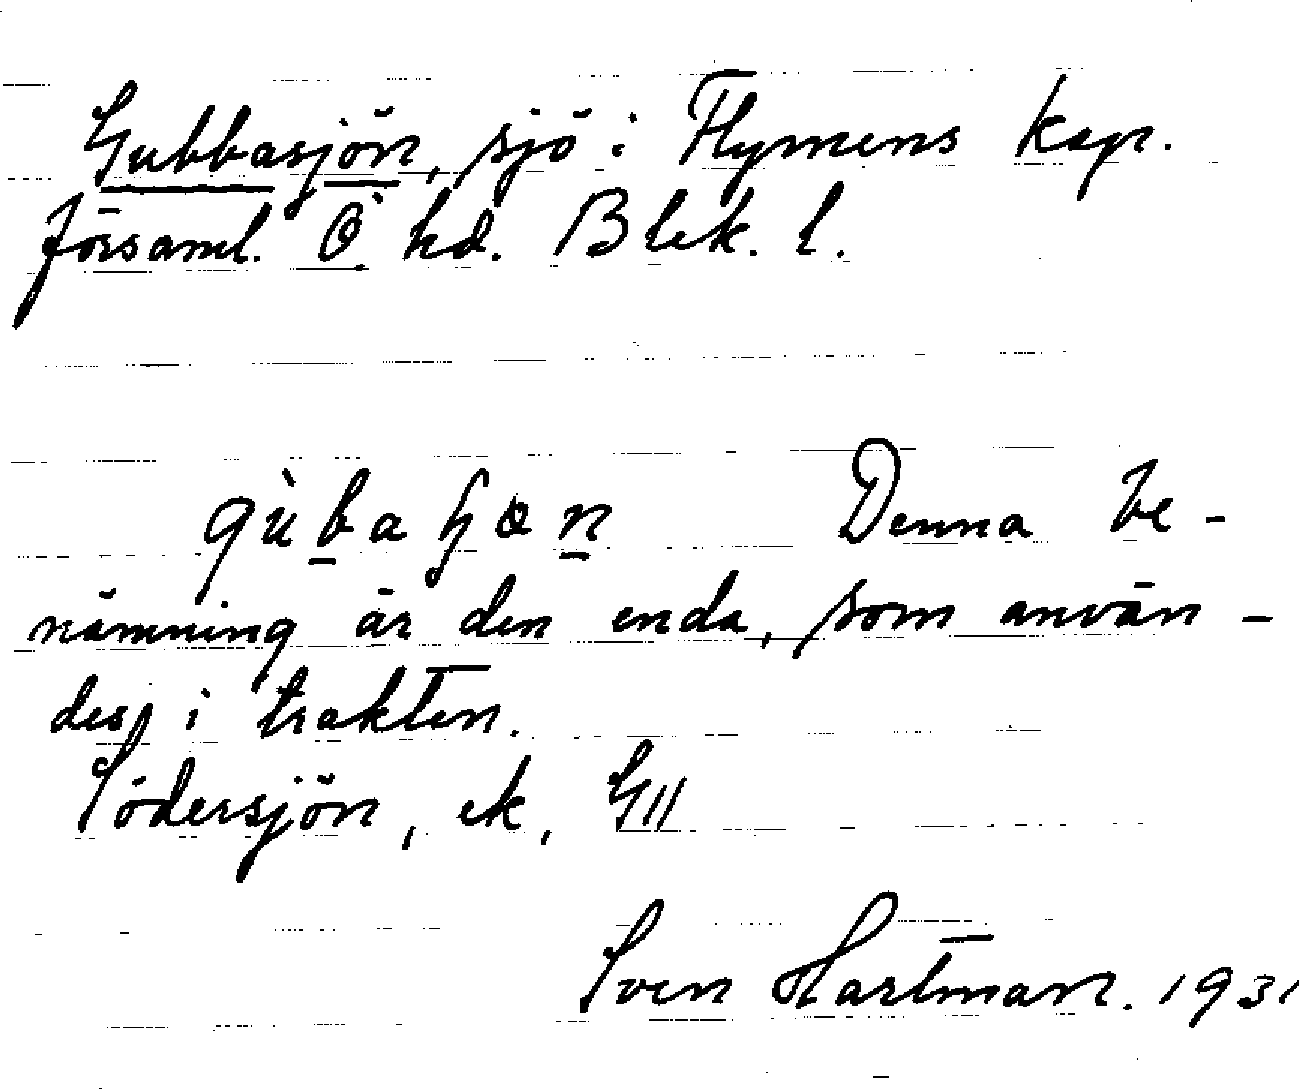 Gubbasjön, sjö i Flymens kap.
församl. Ö. hd. Blek. l.
Denna be-
nämning är den enda, som använ-
des i trakten.
Södersjön, ek. G 11
Sven Hartman. 1931